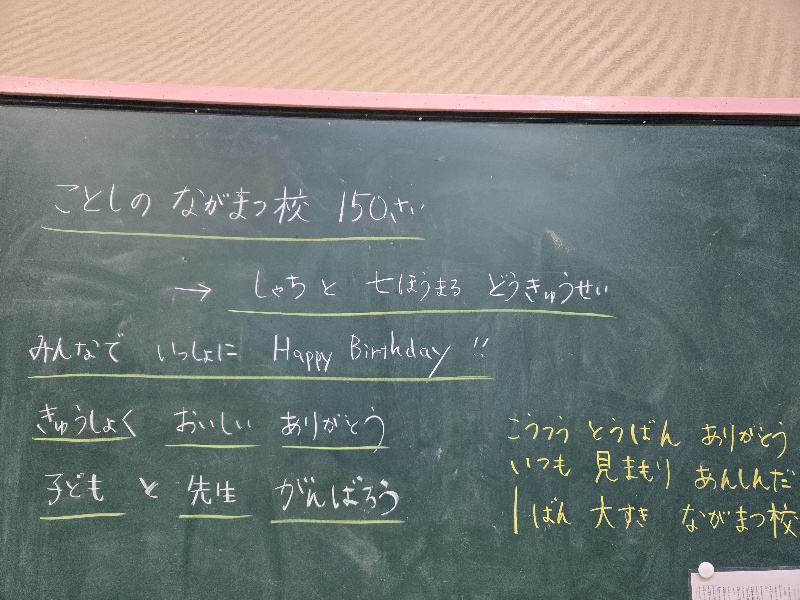 ことしの ながまつ校 150さい
→ しゃちと 七ほうまる どうきゅうせい
みんなで いっしょに Happy Birthday !!
きゅうしょく おいしい ありがとう
子ども と 先生 がんばろう
こうつう とうばん ありがとう
いつも 見まもり あんしんだ
1ばん 大すき ながまつ校